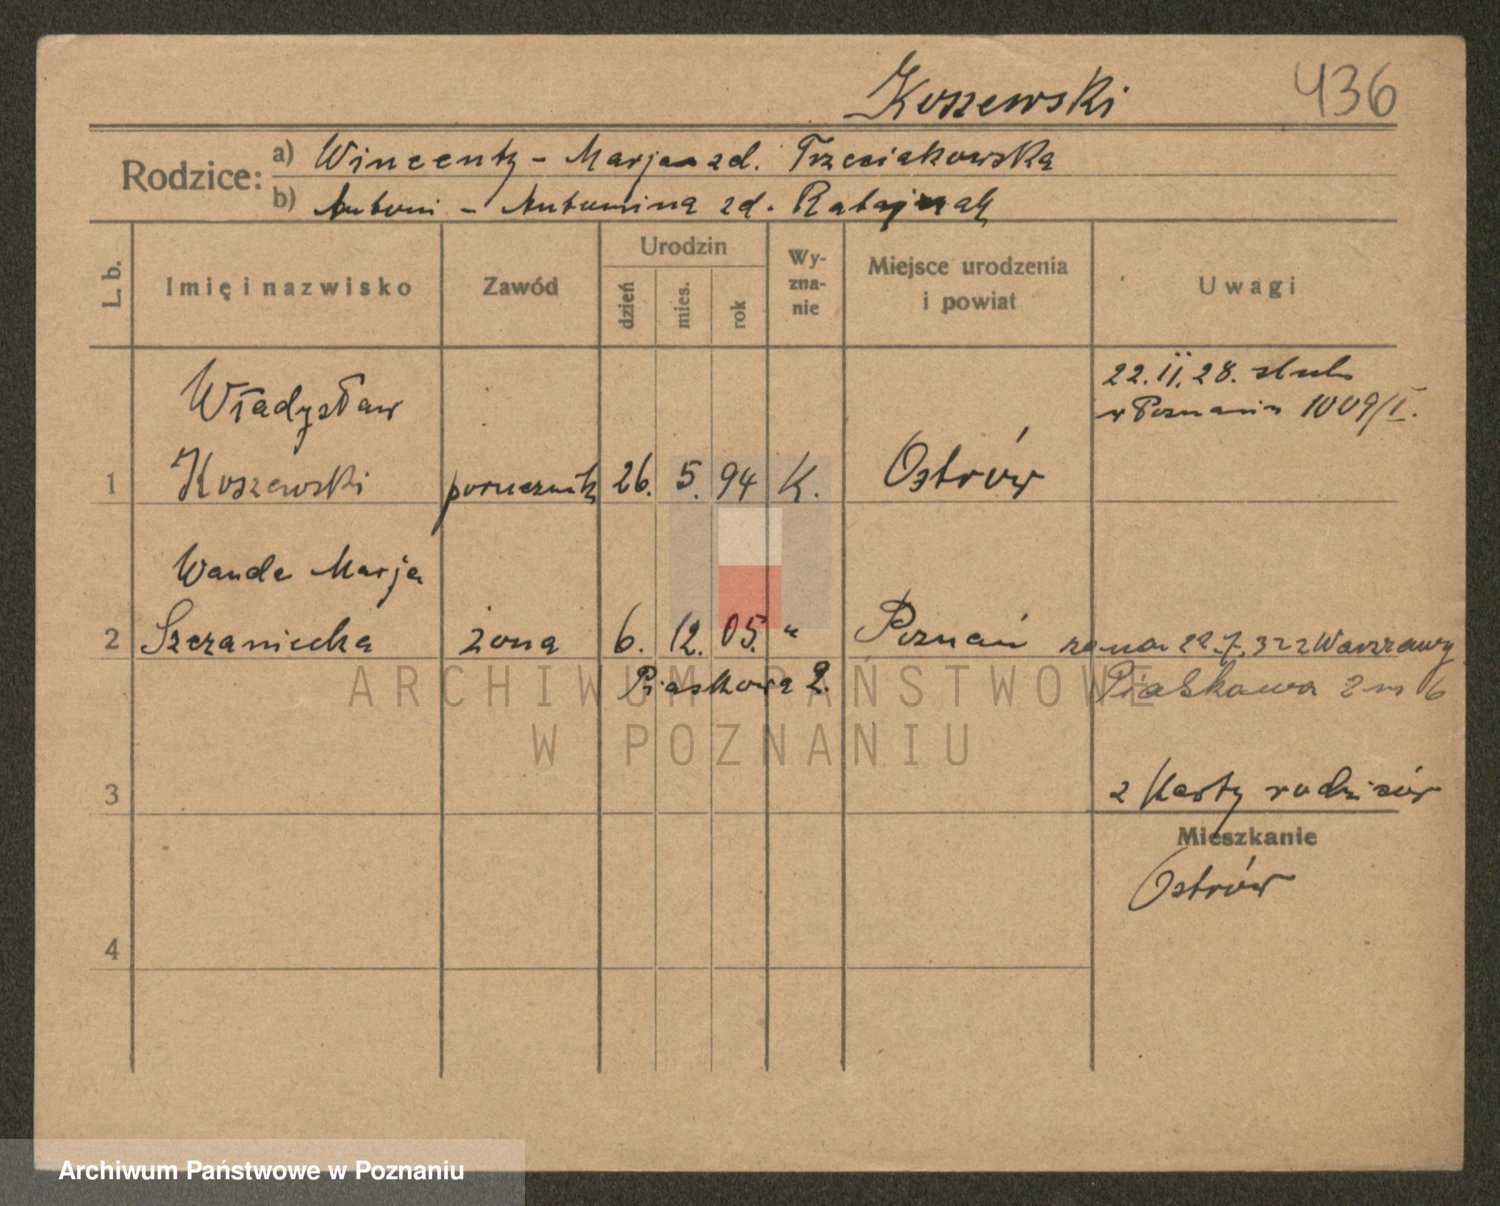 Koszewski 436
Rodzice: a) Wincenty - Marja zd. Trzeciakowska
b) Antoni - Antonina zd. Ratajczak
L. b. Imię i nazwisko Zawód Urodzin dzień mies. rok Wy-zna-nie Miejsce urodzenia i powiat Uwagi
22.II.28. ślub
w Poznaniu 1009/I.
Władysław
1 Koszewski porucznik 26. 5. 94 K. Ostrów
Wanda Marja
2 Szczaniecka żona 6. 12. 05. " Poznań 22.7.32 z Warszawy
Piaskowa 2. Piaskowa 2 m 6
ARCHIWUM PAŃSTWOWE
W POZNANIU
3 2 Karty rodziców
Mieszkanie
Ostrów
4
Archiwum Państwowe w Poznaniu